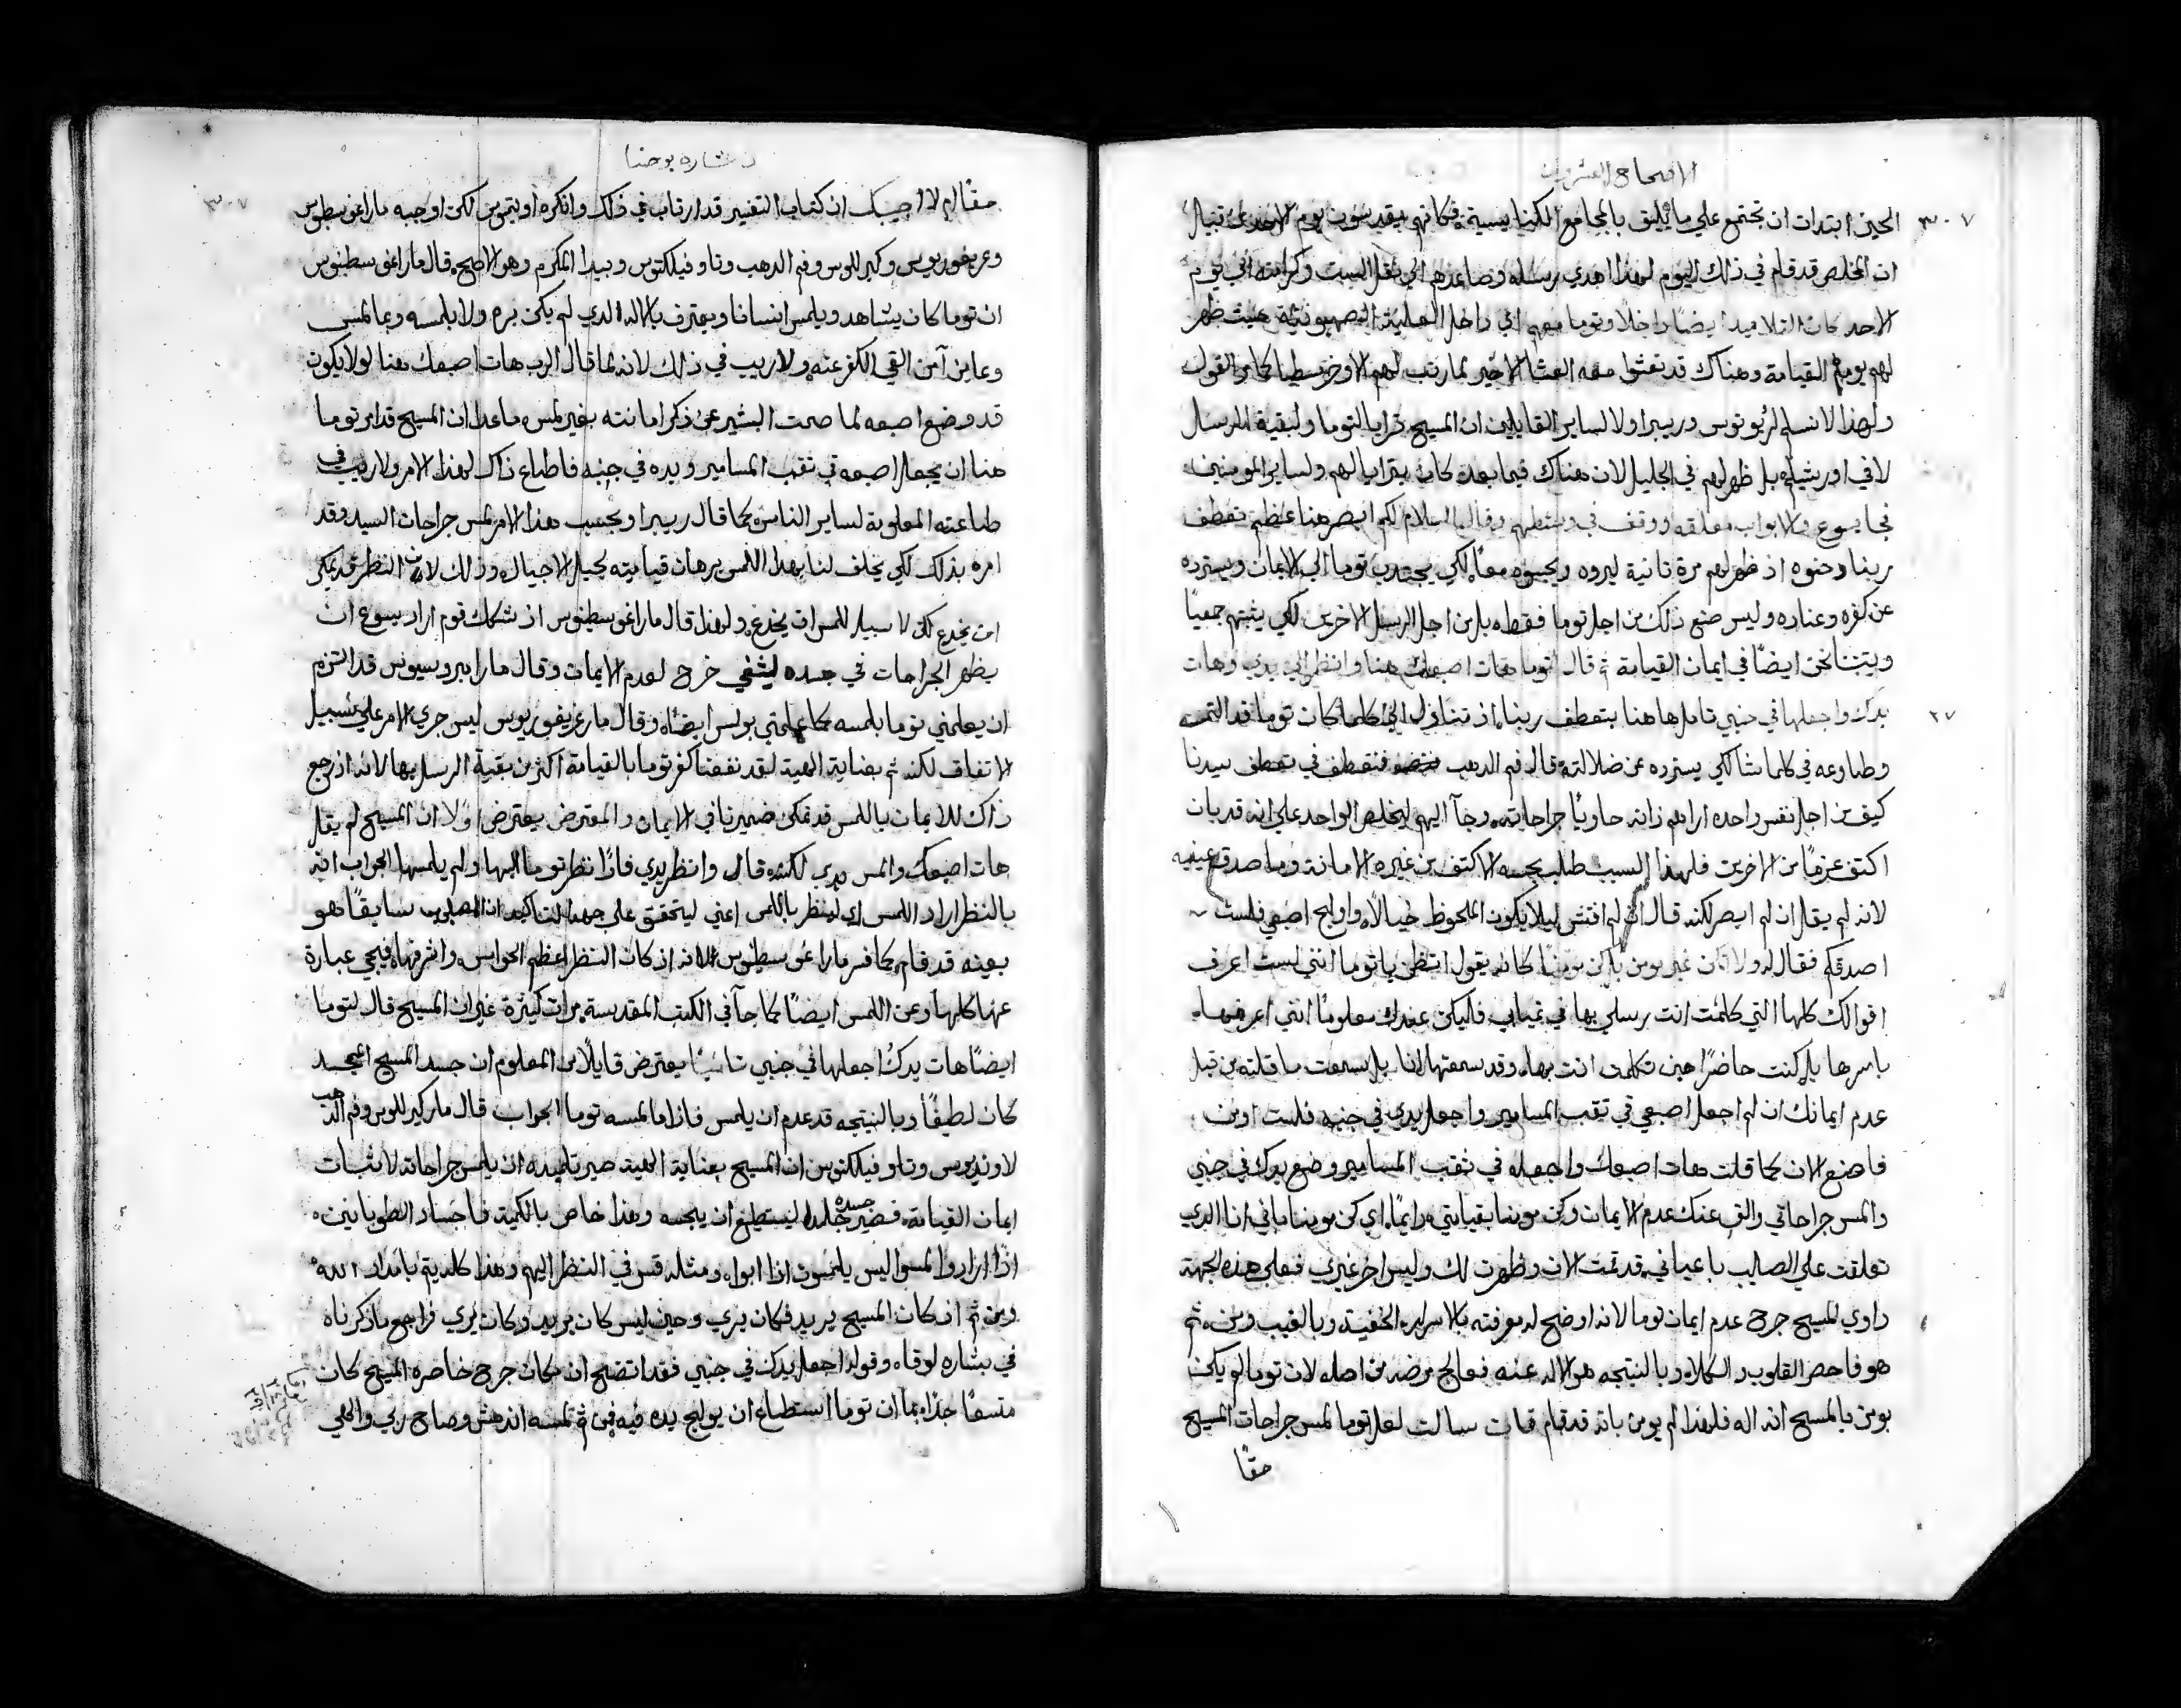 الاصحاح العشرون
٣٠٧
الحين ابتدات ان تجتمع علي ما يليق بالمجامع الكنايسية فكانهم يقدسون يوم الاحد
ان المخلص قد قام في ذلك اليوم لهذا اهدي رسله وصاعدهم الي نقل السبت وكرامته الي يوم
الاحد كان التلاميد ايضًا داخلا وتوما معهم اي داخل العلية الصهيونية حيث ظهر
لهم يوم القيامة وهناك قد تعشوا معه العشا الاخير لما رتب لهم الاوخرسطيا كما مر القول
ولهذا لا نسلم لربوتوس وريبيرا ولا لساير القايلين ان المسيح ترايا لتوما ولبقية الرسل
لا في اورشيلم بل ظهر لهم في الجليل لان هناك فيما بعد كان يترايا لهم ولساير المومنين
فجا يسوع والابواب مغلقه ووقف في وسطهم وقال السلام لكم ابصر هنا عظم تعطف
ربنا وحنوه اذ ظهر لهم مرة تانية ليروه ويجسوه معًا لكي يجتدب توما الي الايمان ويسترده
عن كفره وعناده وليس صنع ذلك من اجل توما فقط بل من اجل الرسل الاخرين لكي يثبتهم جمعيًا
ويثبتنا نحن ايضًا في ايمان القيامة ثم قال لتوما هات اصبعك هنا وانظر الي يدي وهات
٢٧
يدك واجعلها في جنبي تامل هاهنا بتعطف ربنا اذ تنازل الي كلما كان توما قد التمسه
وطاوعه في كلما شا لكي يسترده عن ضلالته قال فم الدهب فتعطف في تعطف سيدنا
كيف من اجل نفس واحده اراهم ذاته حاويًا جراحاته وجآ اليهم ليخلص الواحد علي انه قد بان
اكتف عزمًا من الاخرين فلهذا السبب طلب بجسه الاكتف من غيره الامانة وما صدق عينيه
لانه لم يقل ان لم ابصر لكنه قال ان لم افتش ليلا يكون الملحوظ خيالًا واولج اصبعي فلست
اصدقكم فقال له ولا تكن غير مومن بل كن مومنًا كانه يقول اتظن يا توما انني لست اعرف
اقوالك كلها التي كلمت انت رسلي بها في غيابي فليكن عندك معلومًا انني اعرفها
باسرها بل كنت حاضرًا حين تكلمت انت بها وقد سمعتها انا بل سمعت ما قلته من قبل
عدم ايمانك ان لم اجعل اصبعي في تقب المسامير واجعل يدي في جنبه فلست اومن
فاصنع الان كما قلت هات اصبعك واجعله في ثقب المسامير وضع يدك في جنبي
والمس جراحاتي والق عنك عدم الايمان وكن مومنا بقيامتي دايمًا اي كن مومنا باني انا الدي
تعلقت علي الصليب باعياني قد قمت الان وظهرت لك وليس اخر غيري فعلي هذه الجهة
داوي المسيح جرح عدم ايمان توما لانه اوضح له معرفته بالاسرار الخفية وبالغيب ومن ثم
هو فاحص القلوب والكلا وبالنتيجه هو الاله عنه فعالج مرضه من اصله لان توما لو يكن
يومن بالمسيح انه اله فلهذا لم يومن بانه قد قام فان سالت لعل توما لمس جراحات المسيح
حقًا
بشاره يوحنا
٣٠٧
حقًا ام لا اجيبك ان كتاب التفسير قد ارتاب في ذلك وانكره اوتيميوس لكن اوجبه مار اغوسطينوس
وغريغوريوس وكيرللوس وفم الدهب وتاوفيلكتوس وبيدا المكرم وهو الاصح قال مار اغوسطينوس
ان توما كان يشاهد ويلمس انسانا ويعترف بالاله الدي لم يكن يره ولا يلمسه وبما لمس
وعاين آمن القي الكفر عنه ولا ريب في ذلك لانه لما قال الرب هات اصبعك هنا لو لا يكون
قد وضع اصبعه لما صمت البشير عن ذكر امانته بغير لمس ماعدا ان المسيح قد امر توما
هنا ان يجعل اصبعه في نقب المسامير ويده في جنبه فاطاع ذاك لهذا الامر ولا ريب في
طاعته المعلومة لساير الناس كما قال ريبيرا وبحسب هذا الامر لمس جراحات السيد وقد
امره بذلك لكي يخلف لنا بهذا اللمس برهان قيامته بجيل الاجيال وذلك لان النظر قد يمكن
ان يخدع لكن لا سبيل للمس ان يخدع ولهذا قال مار اغوسطينوس اذ شكك قوم اراد يسوع ان
يظهر الجراحات في جسده ليشفي جرح لعدم الايمان وقال مار امبروسيوس قد التزم
ان يعلمني توما بلمسه كما علمني بولس ايضًا وقال مار غريغوريوس ليس جري الامر علي سبيل
الاتفاق لكنه ثم بعناية الهية لقد نفعنا كفر توما بالقيامة اكثر من بقية الرسل بها لانه اذ رجع
ذاك للايمان باللمس قد تمكن ضميرنا في الايمان والمعترض يعترض اولًا ان المسيح لم يقل
هات اصبعك والمس يدي لكنه قال وانظر يدي فاذًا نظر توما اليها ولم يلمسها الجواب انه
بالنظر اراد اللمس اي لينظر باللمس اعني ليتحقق علي جهة التاكيد ان المصلوب سابقًا هو
بعينه قد قام كما فسر مار اغوسطينوس لانه اذ كان النظر اعظم الحواس واشرفها فيجي عبارة
عنها كلها وعن اللمس ايضًا كما جآ في الكتب المقدسة مرات كتيرة غير ان المسيح قال لتوما
ايضًا هات يدك اجعلها في جنبي تانيًا يعترض قايلًا من المعلوم ان جسد المسيح الممجد
كان لطيفًا وبالنتيجه قد عدم ان يلمس فاذا ما لمسه توما الجواب قال مار كيرللوس وفم الدهب
لاونديوس وتاوفيلكتوس ان المسيح بعناية الهية صير تلميده ان يلمس جراحاته لاثبات
ايمان القيامة فصير جسده ليستطيع ان يجسه وهذا خاص بالكمية فاجساد الطوبانيين
اذا ارادوا لمسوا ليس يلمسون اذا ابوا ومثله قس في النظر اليهم وهذا كله يتم بامداد الله
ومن ثم ان كان المسيح يريد فكان يري وحين ليس كان يريد وكان يري فراجع ما ذكرناه
في بشاره لوقا وقوله اجعل يدك في جنبي فقد اتضح ان مكان جرح خاصره المسيح كان
متسعًا جدًا بما ان توما استطاع ان يولج يده فيه فمن ثم لمسه اندهش وصاح ربي والهي